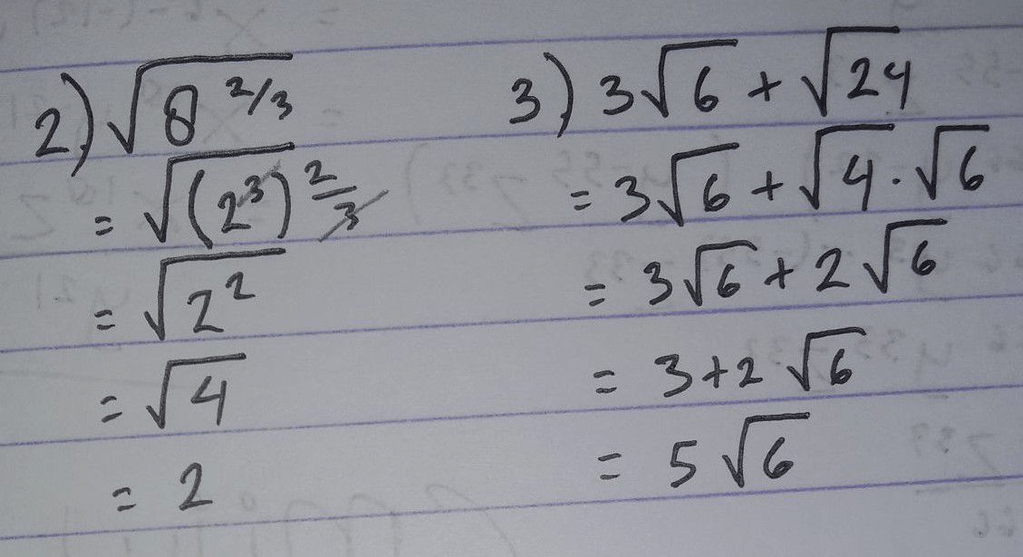 2) √8^2/3
= √(2^3)^2/3
= √2^2
= √4
= 2
3) 3√6 + √24
= 3√6 + √4 · √6
= 3√6 + 2√6
= 3+2 √6
= 5√6